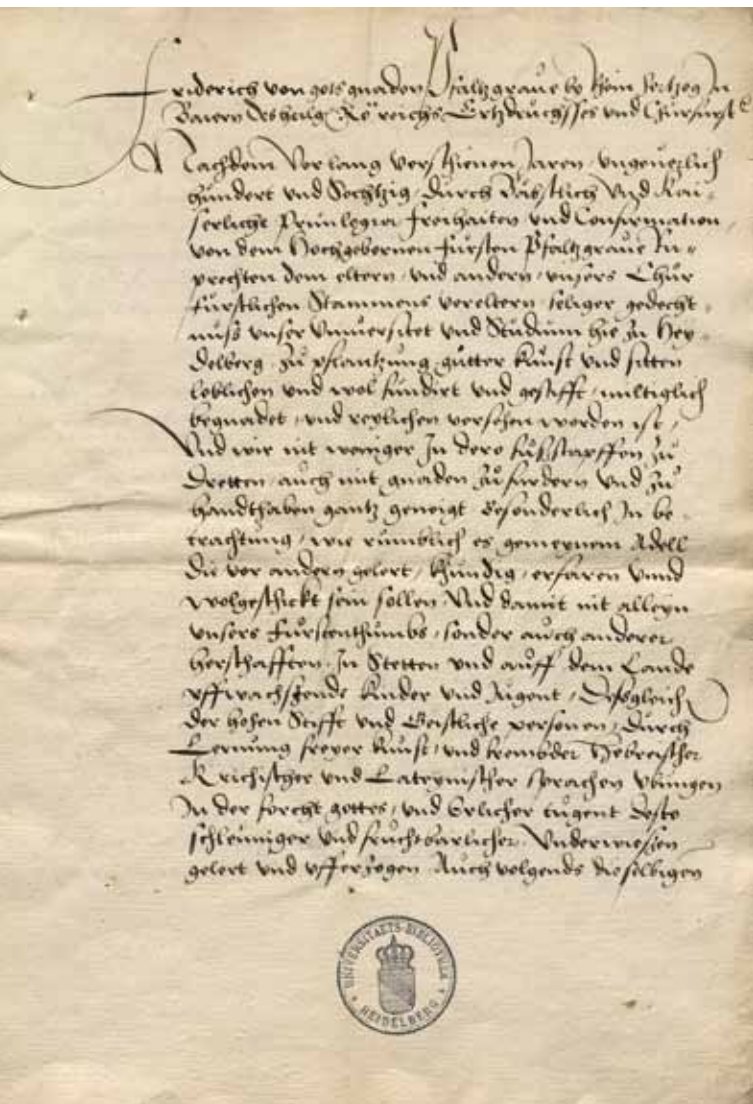 Friderich von gots gnaden Pfaltzgraue by Rhein Hertzog In
Baiern Des heilg Rö Reichs Ertzdruchsses und Churfurst
Nachdem Vor lang verschienen Jaren, ungeuerlich
Hundert und Sechtzig, durch Bäbstlich und Kai-
serliche Priuilegia freihaiten und Confirmation,
von dem Hochgebornen fursten Pfaltzgraue Ru-
prechten dem eltern, und andern, unsers Chur
furstlichen Stammens voreltern, seliger gedecht-
nuß unser Uniuersitet und Studium hie zu Hey-
delberg, zu pflantzung gutter kunst und sitten
loblichen und wol fundirt und gestifft, miltiglich
begnadet, und reylichen versehen worden ist,
Und wir nit weniger In dero fußstapffen zu
dretten, auch mit gnaden zu furdern und zu
handthaben gantz geneigt Besonderlich In be-
trachtung, wie rumblich es gemeynem Adell
die vor andern gelert, kundig, erfaren unnd
wolgeschickt sein sollen, Und damit nit alleyn
unsers furstenthumbs, sonder auch anderer
herschafften, In Stetten und auff dem Lande
uffwachssende kinder und Jugent, Desgleich
der hohen Stifft und Geistliche personen, durch
Lernung freyer kunst, und frembder Hebreischer
Krichischer und Lateynischer sprachen ubungen
In der forcht gottes, und Erlicher tugent desto
schleuniger und fruchtbarlicher Underwiessen
gelert und ufferzogen Auch volgends dieselbigen
UNIVERSITAETS-BIBLIOTHEK
HEIDELBERG